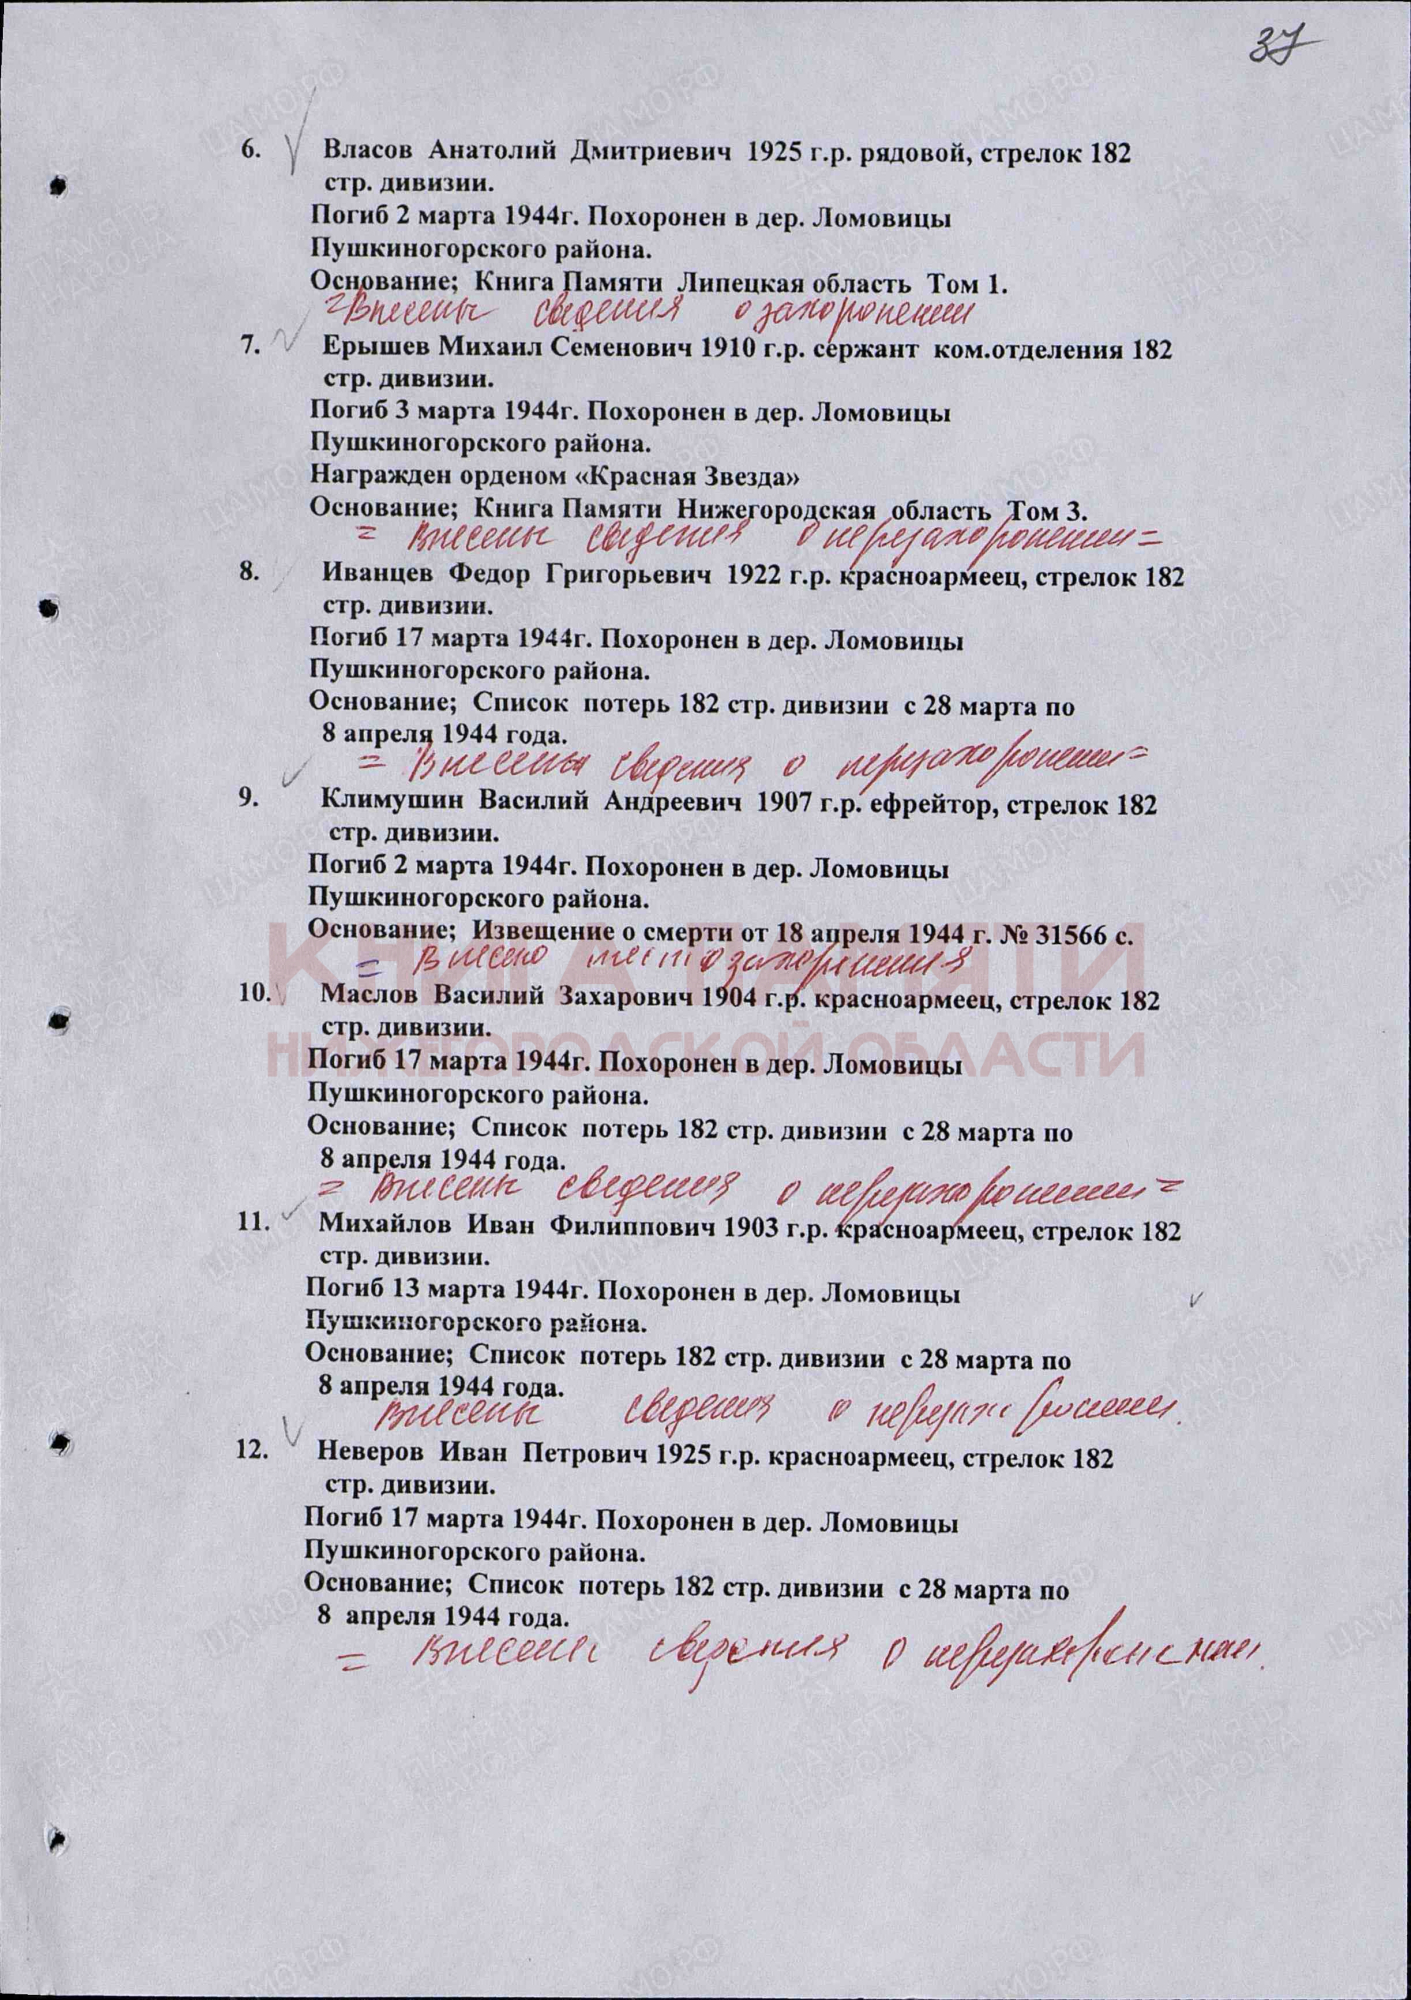 37
6. Власов Анатолий Дмитриевич 1925 г.р. рядовой, стрелок 182
стр. дивизии.
Погиб 2 марта 1944г. Похоронен в дер. Ломовицы
Пушкиногорского района.
Основание; Книга Памяти Липецкая область Том 1.
= Внесены сведения о захоронении
7. Ерышев Михаил Семенович 1910 г.р. сержант ком.отделения 182
стр. дивизии.
Погиб 3 марта 1944г. Похоронен в дер. Ломовицы
Пушкиногорского района.
Награжден орденом «Красная Звезда»
Основание; Книга Памяти Нижегородская область Том 3.
= Внесены сведения о перезахоронении =
8. Иванцев Федор Григорьевич 1922 г.р. красноармеец, стрелок 182
стр. дивизии.
Погиб 17 марта 1944г. Похоронен в дер. Ломовицы
Пушкиногорского района.
Основание; Список потерь 182 стр. дивизии с 28 марта по
8 апреля 1944 года.
= Внесены сведения о перезахоронении =
9. Климушин Василий Андреевич 1907 г.р. ефрейтор, стрелок 182
стр. дивизии.
Погиб 2 марта 1944г. Похоронен в дер. Ломовицы
Пушкиногорского района.
Основание; Извещение о смерти от 18 апреля 1944 г. № 31566 с.
= Внесено место захоронения
КНИГА ПАМЯТИ
10. Маслов Василий Захарович 1904 г.р. красноармеец, стрелок 182
стр. дивизии.
НИЖЕГОРОДСКОЙ ОБЛАСТИ
Погиб 17 марта 1944г. Похоронен в дер. Ломовицы
Пушкиногорского района.
Основание; Список потерь 182 стр. дивизии с 28 марта по
8 апреля 1944 года.
= Внесены сведения о перезахоронении =
11. Михайлов Иван Филиппович 1903 г.р. красноармеец, стрелок 182
стр. дивизии.
Погиб 13 марта 1944г. Похоронен в дер. Ломовицы
Пушкиногорского района.
Основание; Список потерь 182 стр. дивизии с 28 марта по
8 апреля 1944 года.
Внесены сведения о перезахоронении.
12. Неверов Иван Петрович 1925 г.р. красноармеец, стрелок 182
стр. дивизии.
Погиб 17 марта 1944г. Похоронен в дер. Ломовицы
Пушкиногорского района.
Основание; Список потерь 182 стр. дивизии с 28 марта по
8 апреля 1944 года.
= Внесены сведения о перезахоронении.